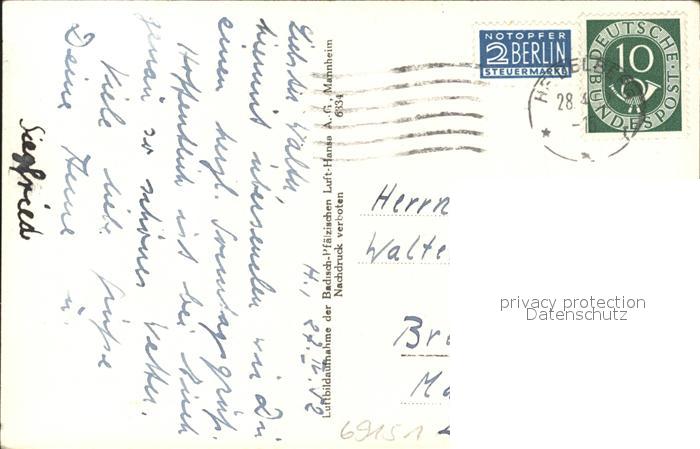 H., 27.IV.52
Lieber Walter,
hiermit übersenden wir Dir
einen herzl. Sonntagsgruß.
Hoffentlich ist bei Euch
genau so schönes Wetter.
Viele liebe Grüße
Deine Anne u.
Siegfried
Luftbildaufnahme der Badisch-Pfälzischen Luft-Hansa A.-G., Mannheim
Nachdruck verboten 6334
NOTOPFER
2 BERLIN
STEUERMARKE
DEUTSCHE
BUNDESPOST
10
28.4
Herrn
Walte
Br
Ma
privacy protection
Datenschutz
69151